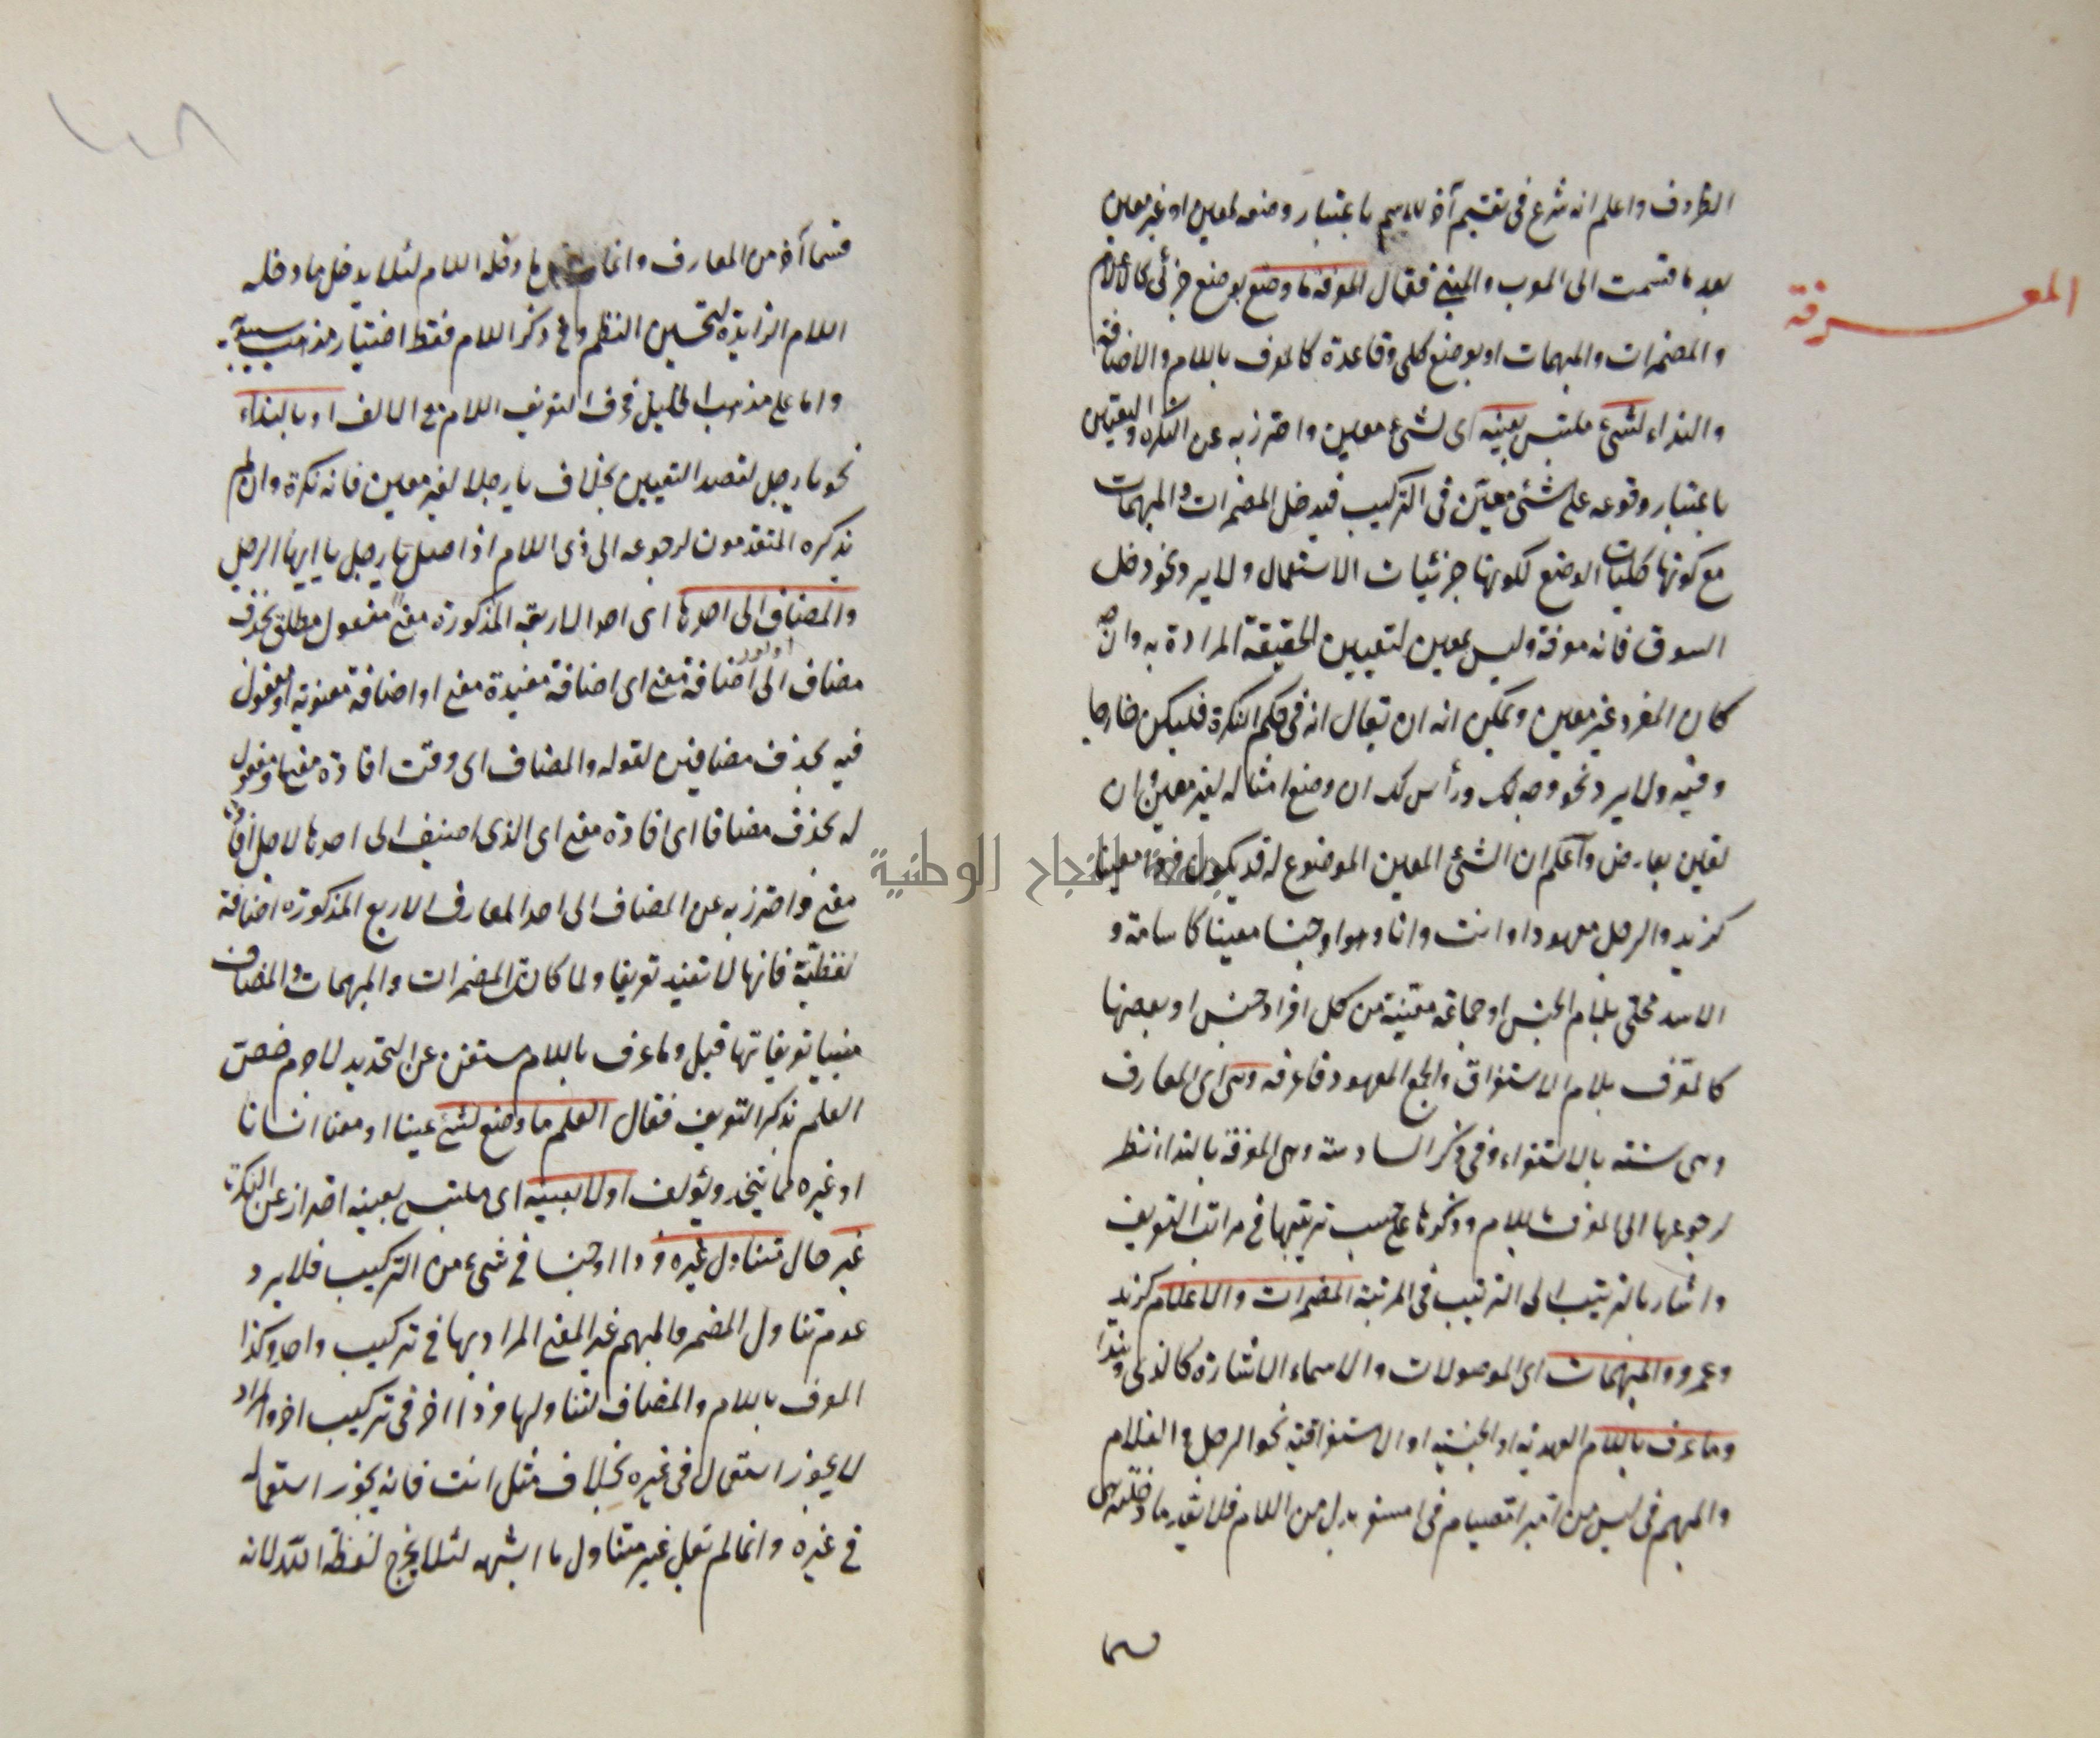 المعرفة
الظروف واعلم انه شرع فى تقسيم آخر للاسم باعتبار وضعه لمعين او غير معين
بعد ما قسمت الى المعرب والمبنى فقال المعرفة ما وضع بوضع جزئى كالاعلام
والمضمرات والمبهمات او بوضع كلى وقاعدة كالمعرف باللام والاضافة
والنداء لشئ ملتبس بعينه اى لشئ معين واحترز به عن النكرة والتعيين
باعتبار وقوعه على شئ معين فى التركيب فيدخل المضمرات والمبهمات
مع كونها كليات الوضع لكونها جزئيات الاستعمال ولا يرد نحو دخل
السوق فانه معرفة وليس بمعين لتعيين الحقيقة المرادة به وان
كان المفرد غير معين ويمكن انه ان يقال انه فى حكم النكرة فليكن خارجا
وفيه ولا يرد نحو وجهك ورأس كك ان وضع امثاله لغير معين وان
تعين بعارض وآعلم ان الشئ المعين الموضوع له قد يكون فردا معينا
كزيد والرجل معهودا وانت وانا وهو او جنسا معينا كاسامة و
الاسد محلى بلام الجنس او جماعة معينة من كل افراد جنس او بعضها
كالمعرف بلام الاستغراق والجمع المعهود فاعرفه وهى اى المعارف
وهى ستة بالاستقراء وفى ذكر السادسة وهى المعرفة بالنداء نظر
لرجوعها الى المعرف باللام وذكرها على حسب ترتيبها فى مراتب التعريف
واشار بالترتيب الى الترتيب فى المرتبة المضمرات والاعلام كزيد
وعمرو والمبهمات اى الموصولات والاسماء الاشارة كالذى وهذا
وما عرف باللام العهدية او الجنسية او الاستغراقية نحو الرجل والغلام
والميم فى ليس من امبر امصيام فى امسفر بدل من اللام فلا
قسما
١٠٨
قسما آخر من المعارف وانما ما دخله اللام لئلا يدخل ما دخله
اللام الزايدة لتحسين النظم وفى ذكر اللام فقط اختيار مذهب سيبويه
واما على مذهب الخليل فحرف التعريف اللام مع الالف او بالنداء
نحو يا رجل لقصد التعيين بخلاف يا رجلا لغير معين فانه نكرة وان لم
يذكره المتقدمون لرجوعه الى ذى اللام اذ اصل يا رجل يا ايها الرجل
والمضاف الى احدها اى احد الاربعة المذكورة معنى مفعول مطلق بحذف
مضاف الى اضافة معنى اى اضافة مفيدة معنى او اضافة معنوية او مفعول
فيه بحذف مضافين لقوله والمضاف اى وقت افادة معنى او مفعول
له بحذف مضاف اى افادة معنى اى الذى اضيف الى احدها لاجل افادة
معنى واحترز به عن المضاف الى احد المعارف الاربع المذكورة اضافة
لفظية فانها لا تفيد تعريفا ولما كان المضمرات والمبهمات والمضاف
مبنيا تعريفاتها قبل وما عرف باللام مستغن عن التحديد لاجرم خص
العلم بذكر التعريف فقال العلم ما وضع لشئ عينا او معنا انسانا
او غيره مما يتخذ ويؤلف اولا بعينه اى ملتبس بعينه احتراز عن النكرة
غير حال متناول غيره فردا او جنسا فى شئ من التركيب فلا يرد
عدم تناول المضمر والمبهم غير المعنى المراد بها فى تركيب واحد وكذا
المعرف باللام والمضاف لتناولها فردا اخر فى تركيب اخر والمراد
لا يجوز استعماله فى غيره بخلاف مثل انت فانه يجوز استعماله
فى غيره وانما لم يقل غير متناول ما اشبهه لئلا يخرج لفظة الله لانه
جامعة النجاح الوطنية